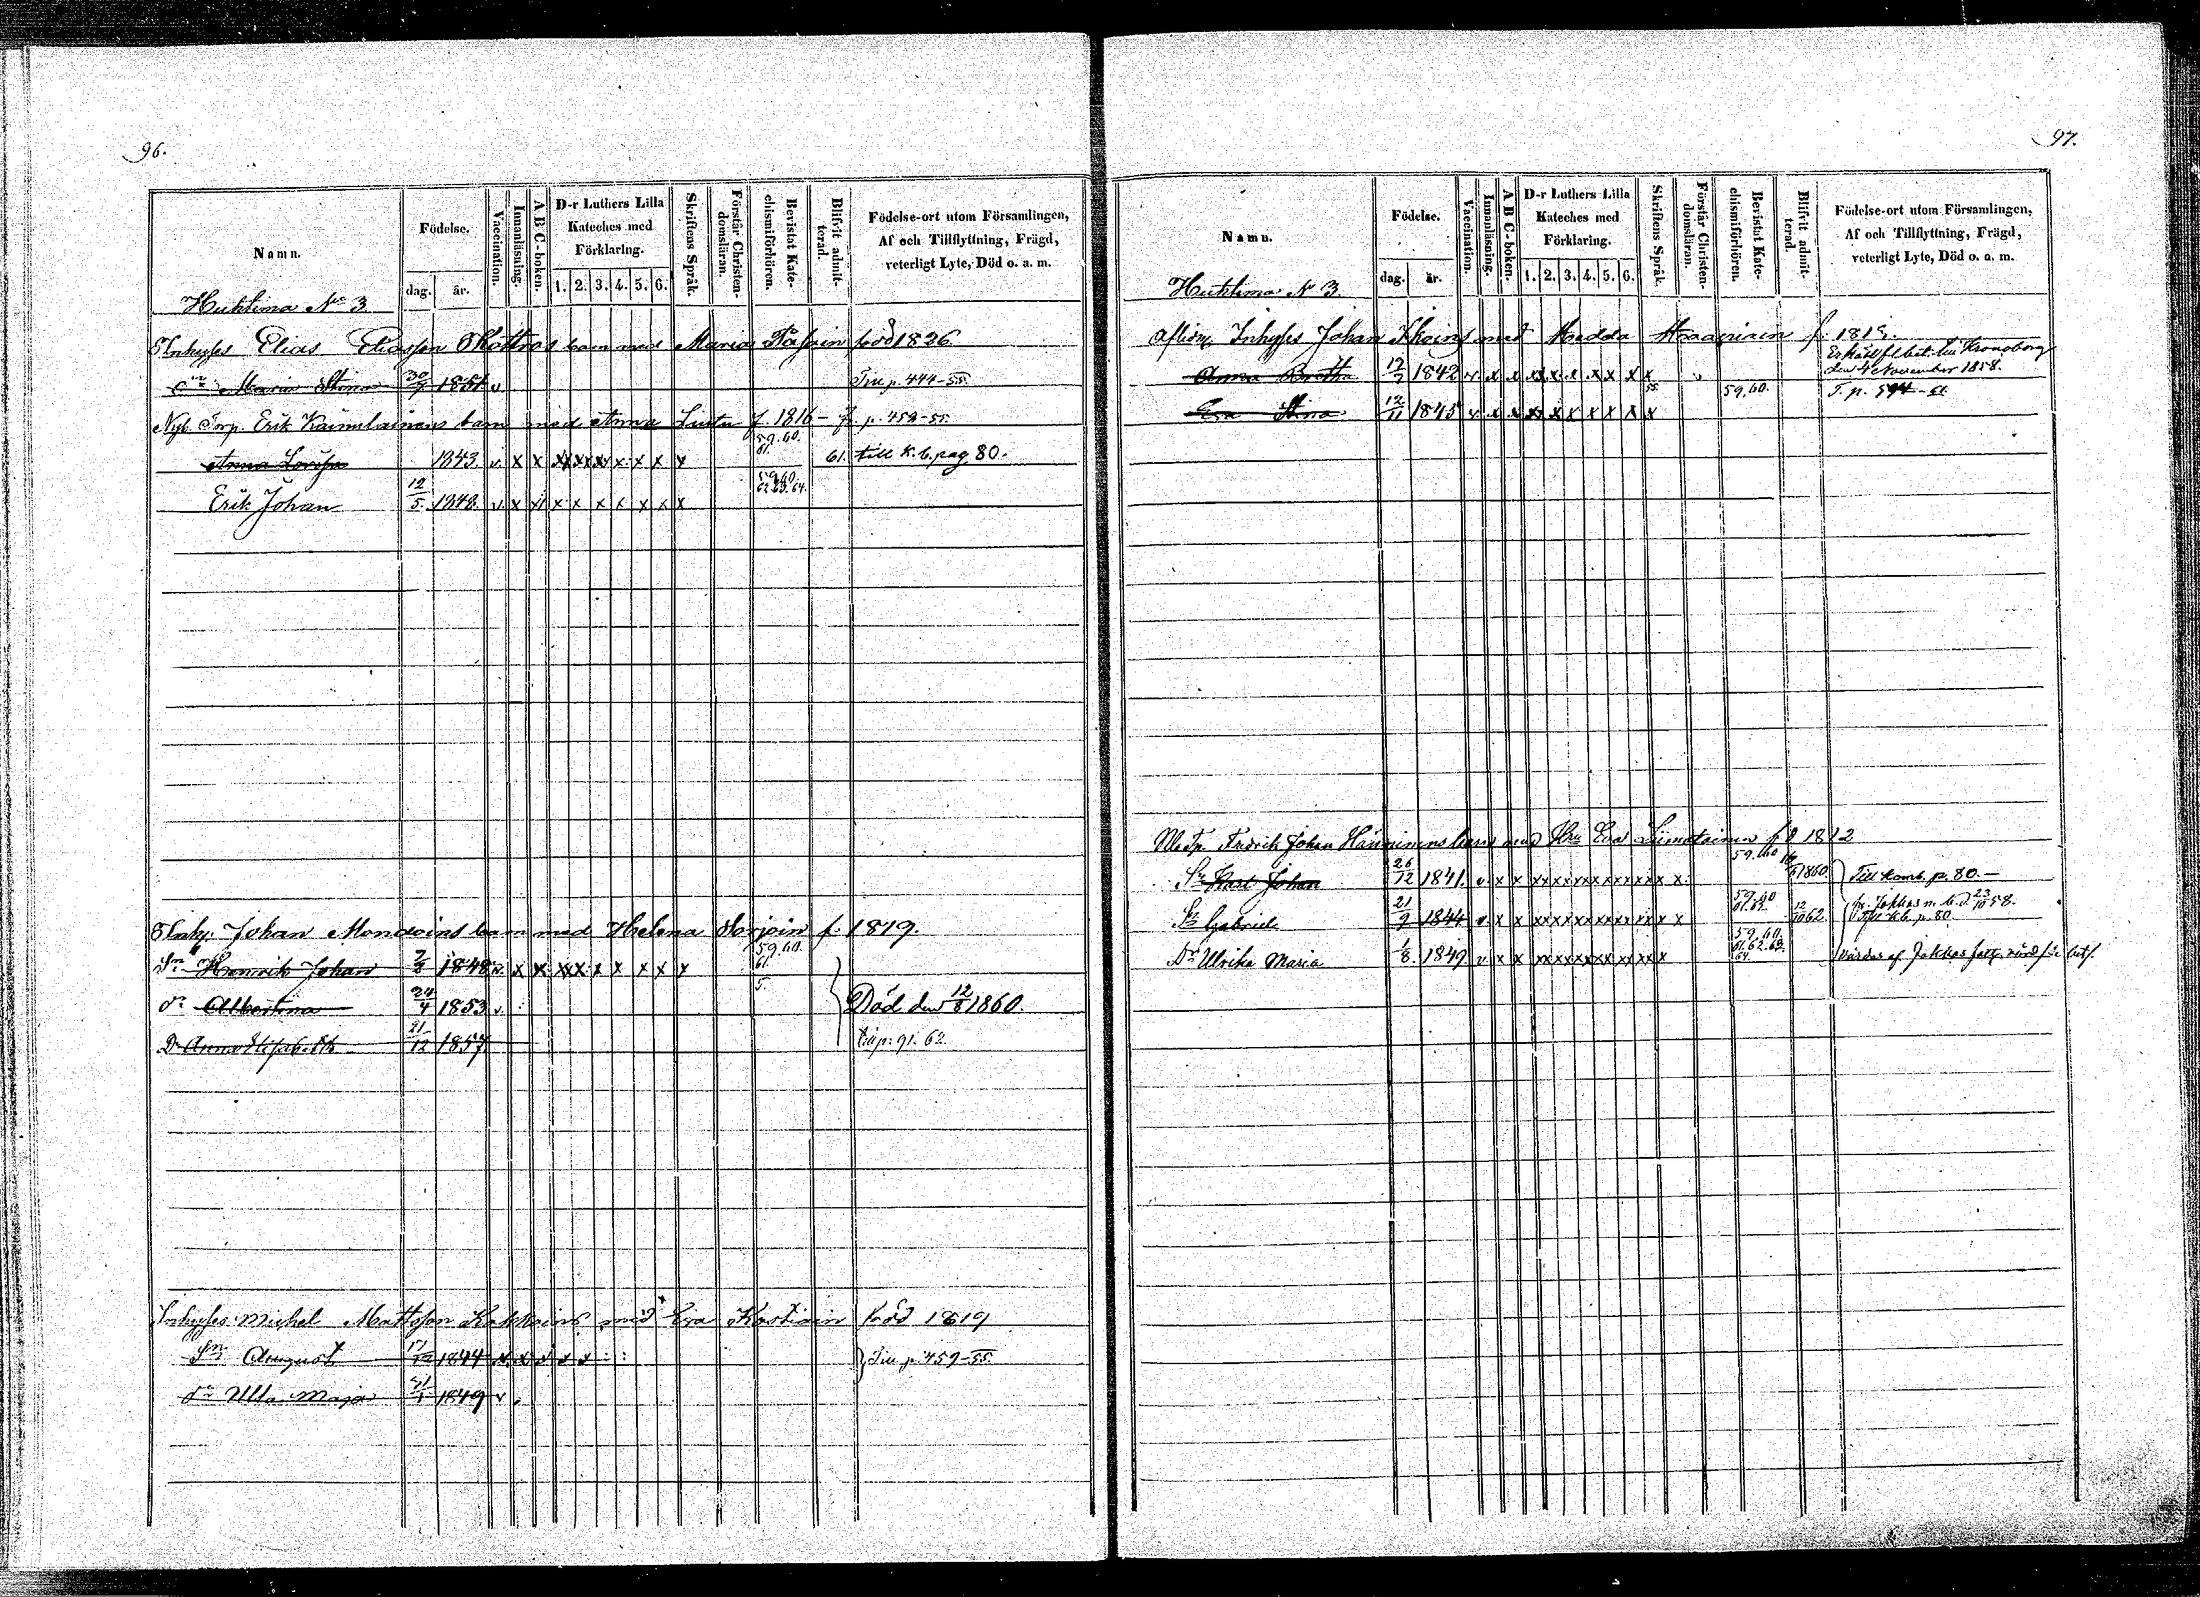 96.
Namn.
Födelse.
dag.
år.
Vaccination.
Innanläsning.
A B C-boken.
D-r Luthers Lilla Kateches med Förklaring.
1. 2. 3. 4. 5. 6.
Skriftens Språk.
Förstår Christendomsläran.
Bevistat Katechismiförhören.
Blifvit admitterad.
Födelse-ort utom Församlingen,
Af och Tillflyttning, Frägd,
veterligt Lyte, Död o. a. m.
Huhtima No 3.
Inhyses Elias Eliasson barn med Maria född 1826
Maria Stina 30/7 1851 v Till p. 444-55.
Nyb. Torp. Erik Kainulainens barn med Anna f. 1816 - p. 452-55.
Anna Lovisa 1843. v. x x x x x x x x x 59.60. 61. 61. till k.b. pag 80.
Erik Johan 12/5 1848. v. x x x x x x x x x 59.60. 62.63.64.
Inhy. Johan barn med Helena f. 1819.
Sn Henrik Johan 2/2 1848 v. x x x x x x x x x 59.60. 61.
dr Albertina 24/4 1853 v. 5. Död den 12/8 1860.
Dr Anna Elisabeth 21/12 1857 till p. 91. 62.
Inhyses Michel Mattsson med Eva född 1819
Sn August 17/12 1844 x x x x x Till p. 459-55.
dr Ulla Maja 31/1 1849 v
97.
Namn.
Födelse.
dag.
år.
Vaccination.
Innanläsning.
A B C-boken.
D-r Luthers Lilla Kateches med Förklaring.
1. 2. 3. 4. 5. 6.
Skriftens Språk.
Förstår Christendomsläran.
Bevistat Katechismiförhören.
Blifvit admitterad.
Födelse-ort utom Församlingen,
Af och Tillflyttning, Frägd,
veterligt Lyte, Död o. a. m.
Huhtima No 3.
Inhyses Johan med Hedda f. 181
Anna Britta 12/7 1842 v. x x x x x x x x x Erhöll fl. bet. till Kronoborg den 4 November 1858.
Eva Stina 12/11 1845 v x x x x x x x x x 55 59,60. T. p.
Fredrik Johan Hänninens barn med Hru Eva född 1812
Sn Karl Johan 26/12 1841. v. x x x x x x x x x x 59.60 1860 Till komb. p. 80.
Sn Gabriel 21/9 1844 v. x x x x x x x x x x 59.60 61.62. 12/10 62 fr. Jakkas m. b. d. 23/10 58. Till k.b. p. 80
Dr Ulrika Maria 1/8. 1849 v. x x x x x x x x x 59.60. 61.62.63. 64. vårdas af Jakkas